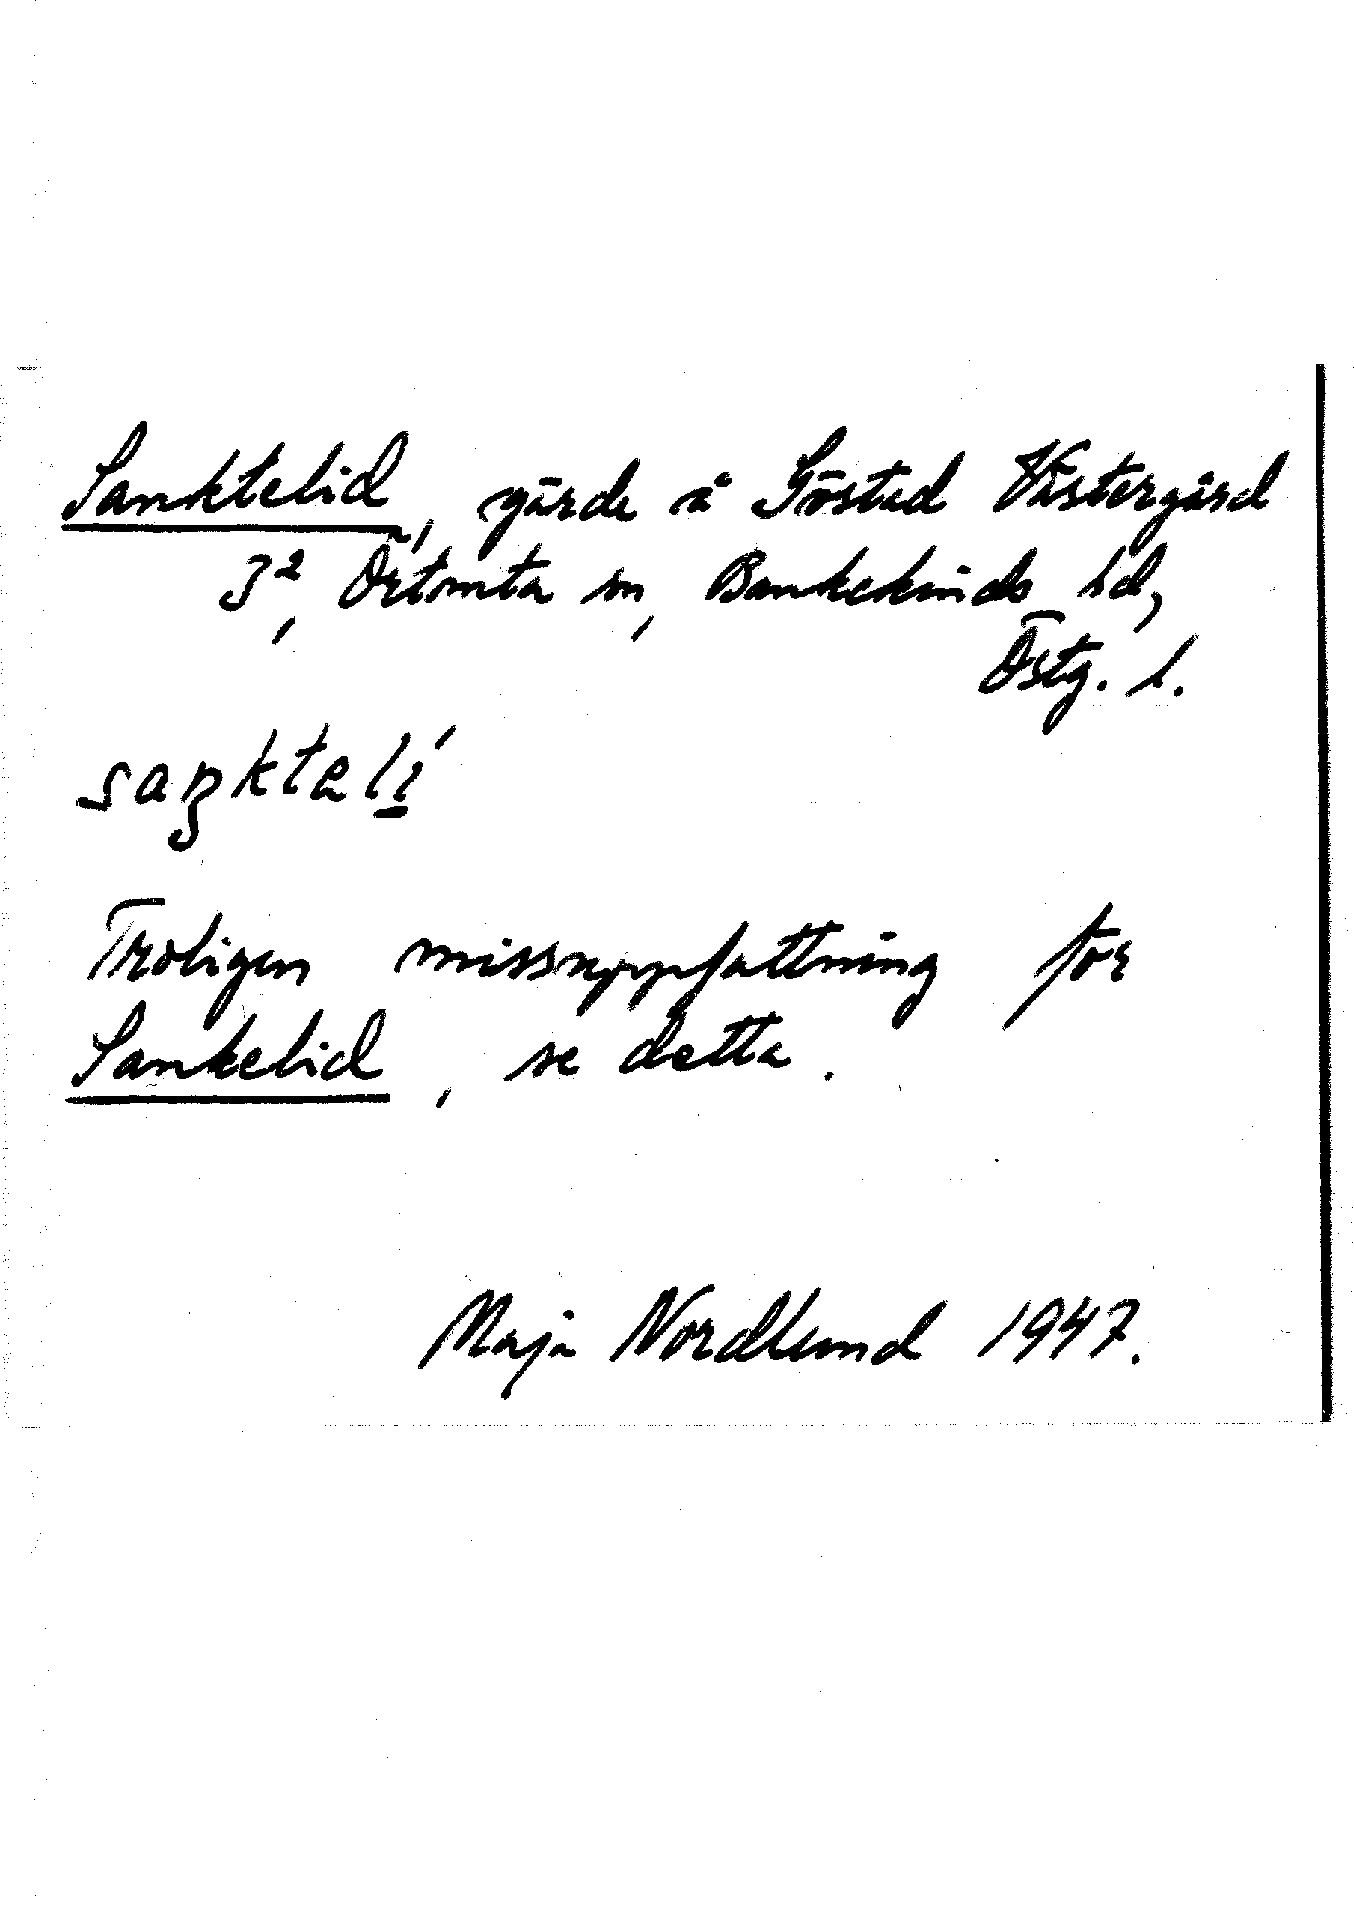 Sanktelid, gärde å Göstad Västergård
3², Örtomta sn, Bankekinds hd,
Östg. l.
saŋktelí
Troligen missuppfattning för
Sankelid, se detta.
Maja Nordlund 1947.